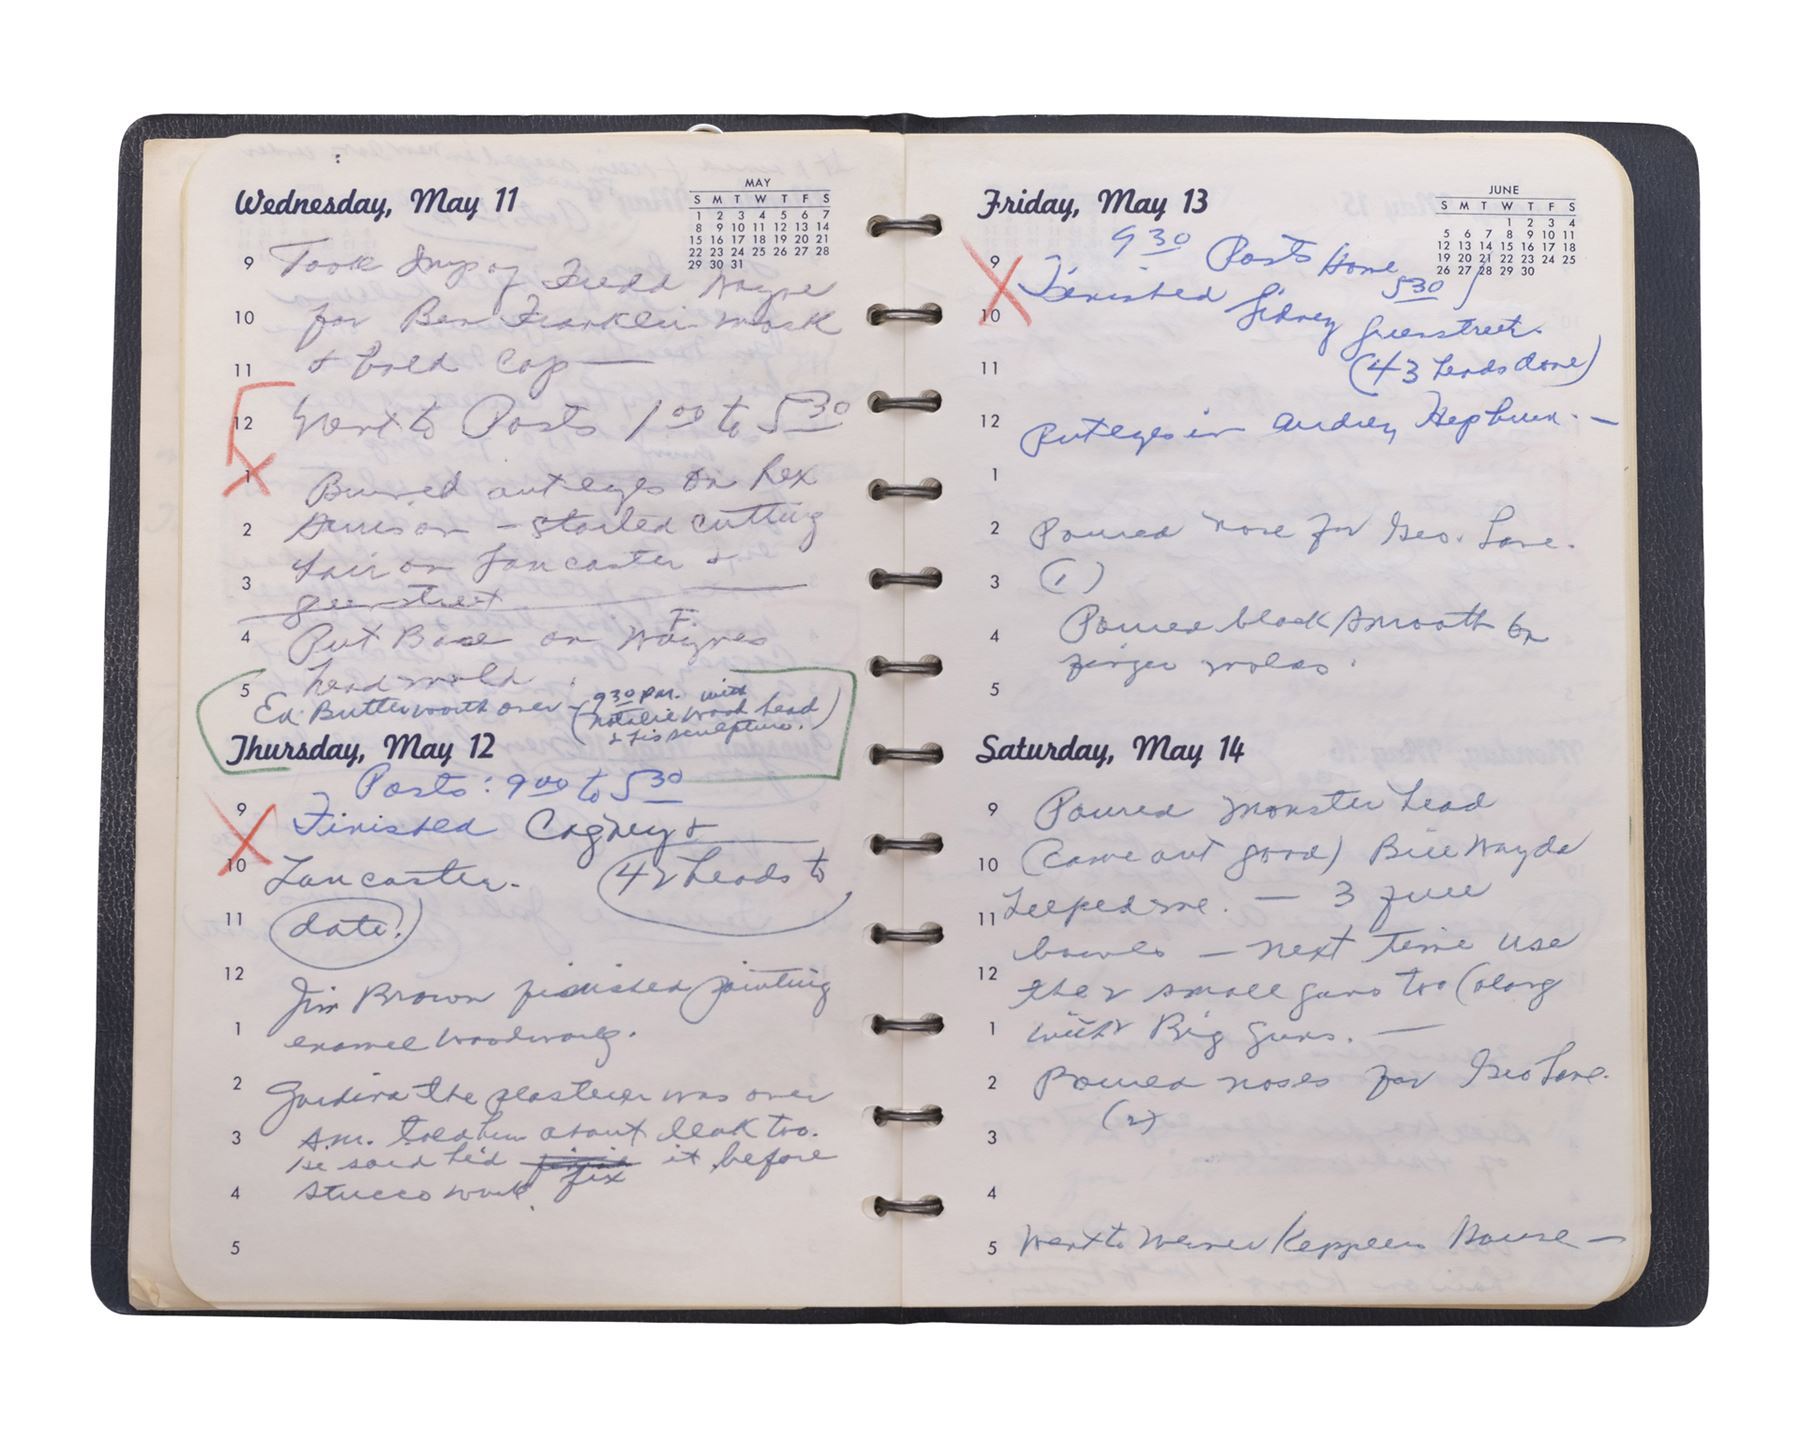 Wednesday, May 11
MAY
S M T W T F S
1 2 3 4 5 6 7
8 9 10 11 12 13 14
15 16 17 18 19 20 21
22 23 24 25 26 27 28
29 30 31
9 Took Imp of Fredd Wayne
10 for Ben Franklin mask
11 & bald cap —
12 Went to Posts 1 00 to 5 30
1 Burned out eyes on Rex
2 Harrison - started cutting
hair on Lancaster &
3 Greenstreet
4 Put Base on F. Waynes
head mold.
5 Ed. Butterworth over - (9 30 P.M. with
Natalie Wood head)
& his sculpture.
Thursday, May 12
Posts: 9 00 to 5 30
9 Finished Cagney &
10 Lancaster. (42 heads to
11 date!)
12 Jim Brown finished painting
1 enamel woodwork.
2 Gardina the plasterer was over
3 A.M. told him about leak too.
He said he'd fix it before
4 stucco work.
5
Friday, May 13
JUNE
S M T W T F S
1 2 3 4
5 6 7 8 9 10 11
12 13 14 15 16 17 18
19 20 21 22 23 24 25
26 27 28 29 30
9 30 Posts Home 5 30
9 Finished Sidney Greenstreet.
10
11 (43 heads done)
12 Put eyes in Audrey Hepburn. —
1
2 Poured nose for Geo. Lane.
3 (1)
4 Poured black smooth on
finger molds.
5
Saturday, May 14
9 Poured monster head
10 (came out good) Bill
11 helped me. — 3 full
bowls — next time use
12 the 2 small guns too (along
1 with 2 Big guns. —
2 Poured noses for Geo Lane.
(2)
3
4
5 Went to Werner Kepplers House —